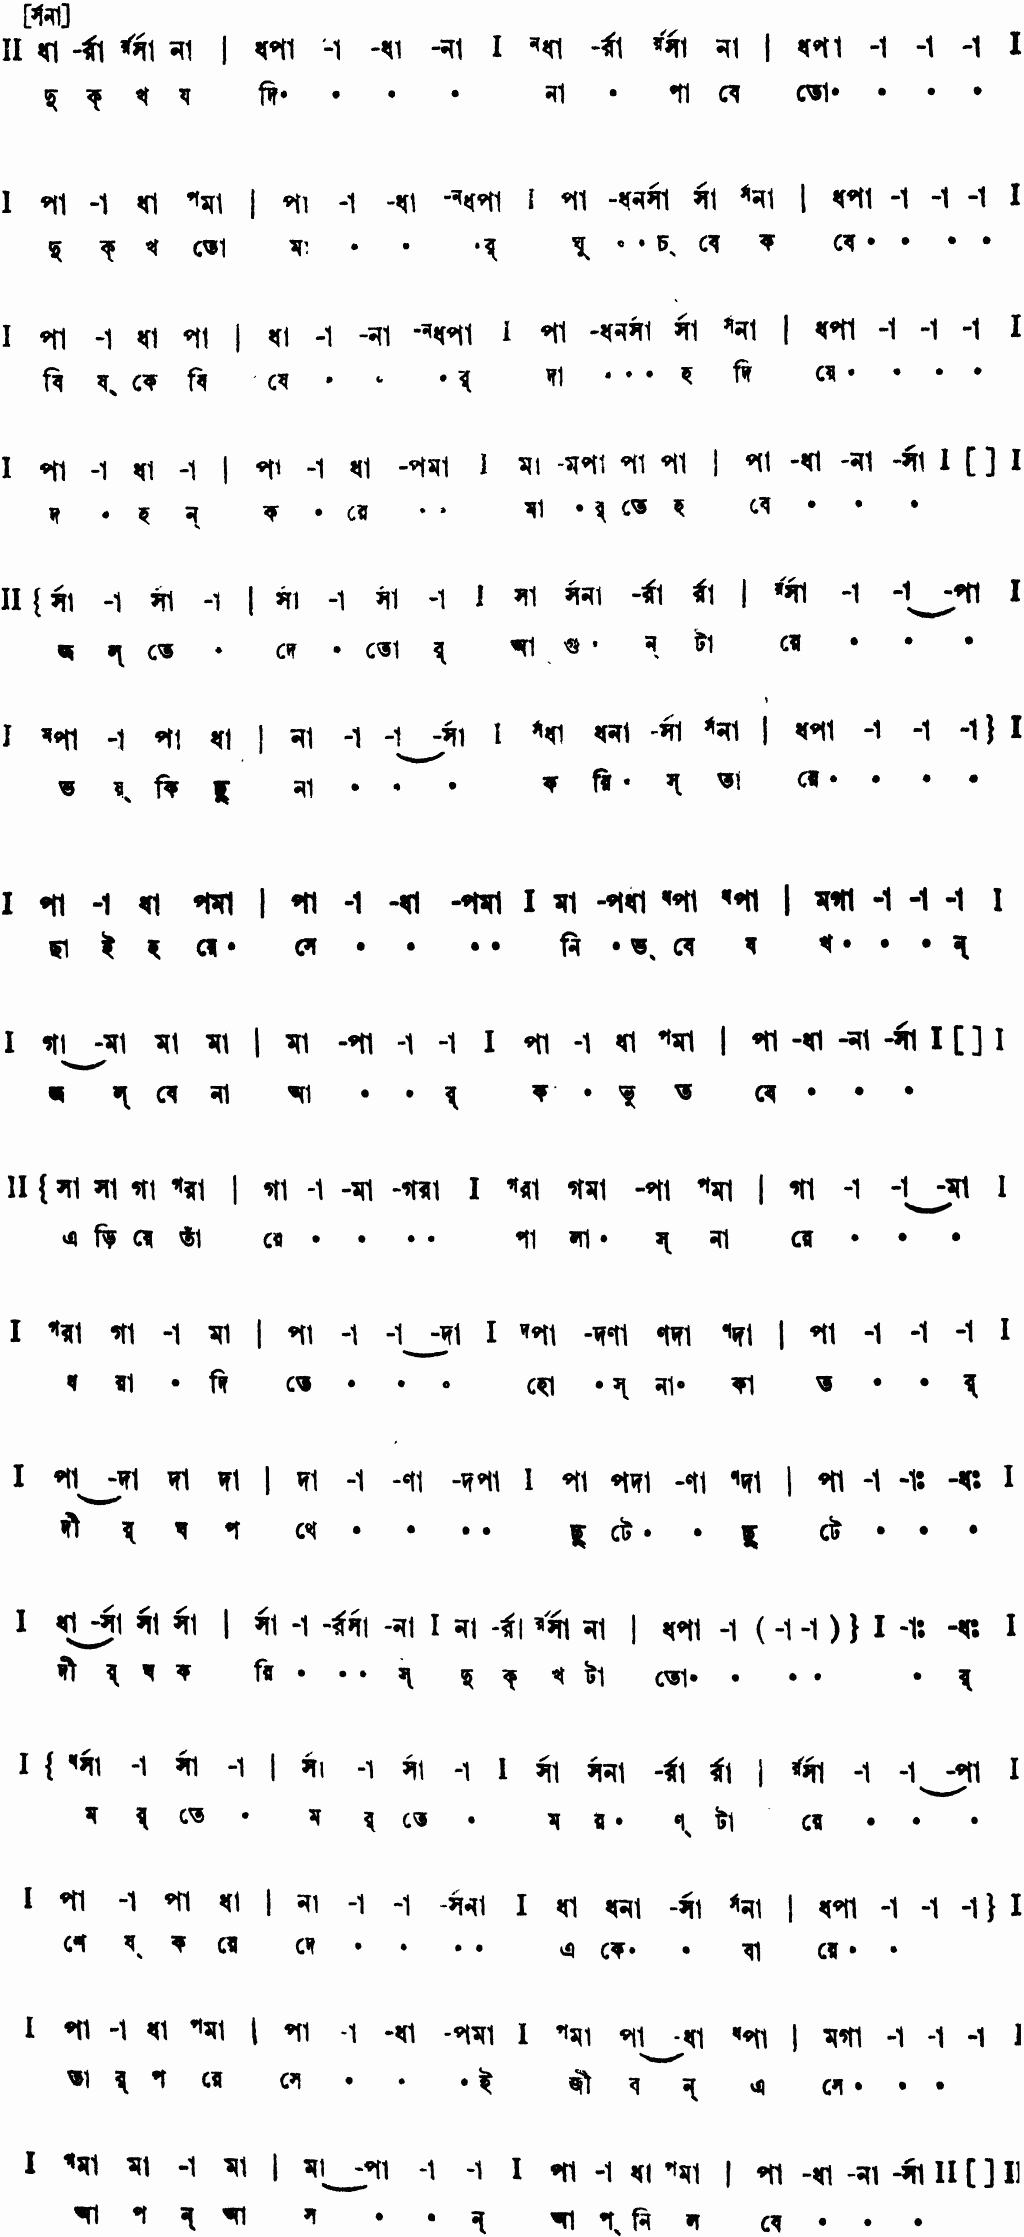 [র্সনা]
II ধা -র্রা র্রর্সা না | ধপা -া -ধা -না I নধা -র্রা র্রর্সা না | ধপা -া -া -া I
দু ক্ খ য দি॰ ॰ ॰ ॰ না ॰ পা বে তো॰ ॰ ॰ ॰
I পা -া ধা পমা | পা -া -ধা -নধপা I পা -ধনর্সা র্সা র্সনা | ধপা -া -া -া I
দু ক্ খ তো মা ॰ ॰ ॰র্ ঘু ॰॰চ্ বে ক বে॰ ॰ ॰ ॰
I পা -া ধা পা | ধা -া -না -নধপা I পা -ধনর্সা র্সা র্সনা | ধপা -া -া -া I
বি ষ্ কে বি ষে ॰ ॰ ॰র্ দা ॰॰॰ হ দি য়ে॰ ॰ ॰ ॰
I পা -া ধা -া | পা -া ধা -পমা I মা -মপা পা পা | পা -ধা -না -র্সা I [ ] I
দ ॰ হ ন্ ক ॰ রে ॰॰ মা ॰র্ তে হ বে ॰ ॰ ॰
II { র্সা -া র্সা -া | র্সা -া র্সা -া I র্সা র্সনা -র্রা র্রা | র্রর্সা -া -া -পা I
জ ল্ তে ॰ দে ॰ তো র্ আ গু॰ ন্ টা রে ॰ ॰ ॰
I মপা -া পা ধা | না -া -া -র্সা I র্সধা ধনা -র্সা র্সনা | ধপা -া -া -া } I
ভ য়্ কি ছু না ॰ ॰ ॰ ক রি॰ স্ তা রে॰ ॰ ॰ ॰
I পা -া ধা পমা | পা -া -ধা -পমা I মা -পধা ধপা ধপা | মগা -া -া -া I
ছা ই হ য়ে॰ সে ॰ ॰ ॰॰ নি ॰ভ্ বে য খ॰ ॰ ॰ ন্
I গা -মা মা মা | মা -পা -া -া I পা -া ধা পমা | পা -ধা -না -র্সা I [ ] I
জ ল্ বে না আ ॰ ॰ র্ ক ॰ ভু ত বে ॰ ॰ ॰
II { সা সা গা গরা | গা -া -মা -গরা I গরা গমা -পা পমা | গা -া -া -মা I
এ ড়ি য়ে তাঁ রে ॰ ॰ ॰॰ পা লা॰ স্ না রে ॰ ॰ ॰
I গরা গা -া মা | পা -া -া -দা I দপা -দণা ণদা ণদা | পা -া -া -া I
ধ রা ॰ দি তে ॰ ॰ ॰ হো ॰স্ না॰ কা ত ॰ ॰ র্
I পা -দা দা দা | দা -া -ণা -দপা I পা পদা -ণা ণদা | পা -া -াঃ -ধঃ I
দী র্ ঘ প থে ॰ ॰ ॰॰ ছু টে॰ ॰ ছু টে ॰ ॰ ॰
I ধা -র্সা র্সা র্সা | র্সা -া -র্রর্সা -না I না -র্রা র্রর্সা না | ধপা -া ( -া -া ) } I -াঃ -ধঃ I
দী র্ ঘ ক রি ॰ ॰॰ স্ দু ক্ খ টা তো॰ ॰ ॰ ॰ ॰ র্
I { ধর্সা -া র্সা -া | র্সা -া র্সা -া I র্সা র্সনা -র্রা র্রা | র্রর্সা -া -া -পা I
ম র্ তে ॰ ম র্ তে ॰ ম র॰ ণ্ টা রে ॰ ॰ ॰
I পা -া পা ধা | না -া -া -র্সনা I ধা ধনা -র্সা র্সনা | ধপা -া -া -া } I
শে ষ্ ক রে দে ॰ ॰ ॰॰ এ কে॰ ॰ বা রে॰ ॰
I পা -া ধা পমা | পা -া -ধা -পমা I পমা পা -ধা ধপা | মগা -া -া -া I
তা র্ প রে সে ॰ ॰ ॰ই জী ব ন্ এ সে॰ ॰ ॰
I গমা মা -া মা | মা -পা -া -া I পা -া ধা পমা | পা -ধা -না -র্সা II [ ] II
আ প ন্ আ স ॰ ॰ ন্ আ প্ নি ল বে ॰ ॰ ॰